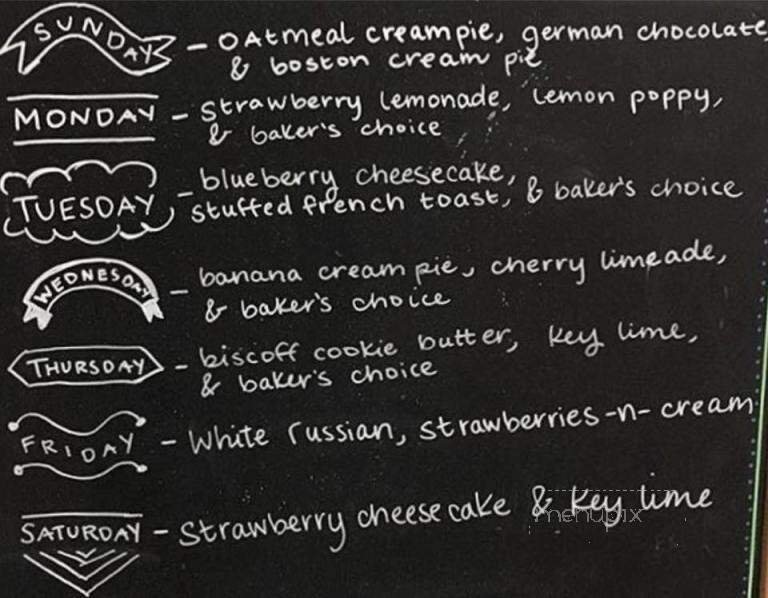 SUNDAY - Oatmeal cream pie, german chocolate,
& boston cream pie
MONDAY - strawberry lemonade, lemon poppy,
& baker's choice
TUESDAY - blueberry cheesecake,
stuffed french toast, & baker's choice
WEDNESDAY - banana cream pie, cherry limeade,
& baker's choice
THURSDAY - biscoff cookie butter, key lime,
& baker's choice
FRIDAY - White russian, strawberries-n-cream
SATURDAY - Strawberry cheesecake & key lime
menupix